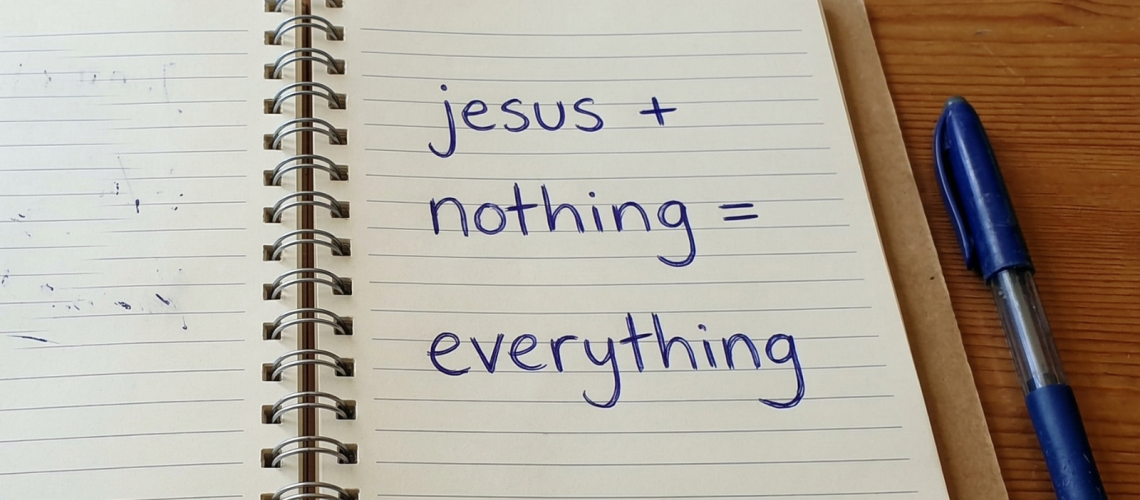 jesus +
nothing =
everything